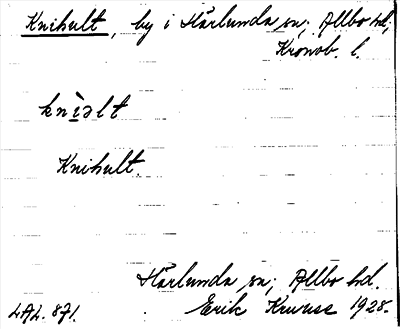 Knihult, by i Härlunda sn; Allbo hd,
Kronob. l.
knìəlt
Knihult.
Härlunda sn; Allbo hd.
LAL. 871. Erik Kruuse 1928.